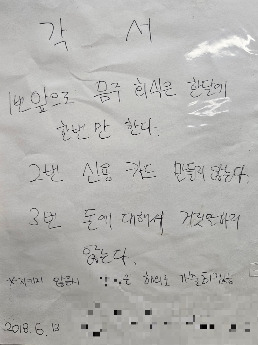 각 서
1번 앞으로 음주 회식은 한달에
한번만 한다.
2번 신용 카드 만들지 않는다.
3번 돈에 대해서 거짓말하지
않는다.
은 해외로
2018. 6. 13